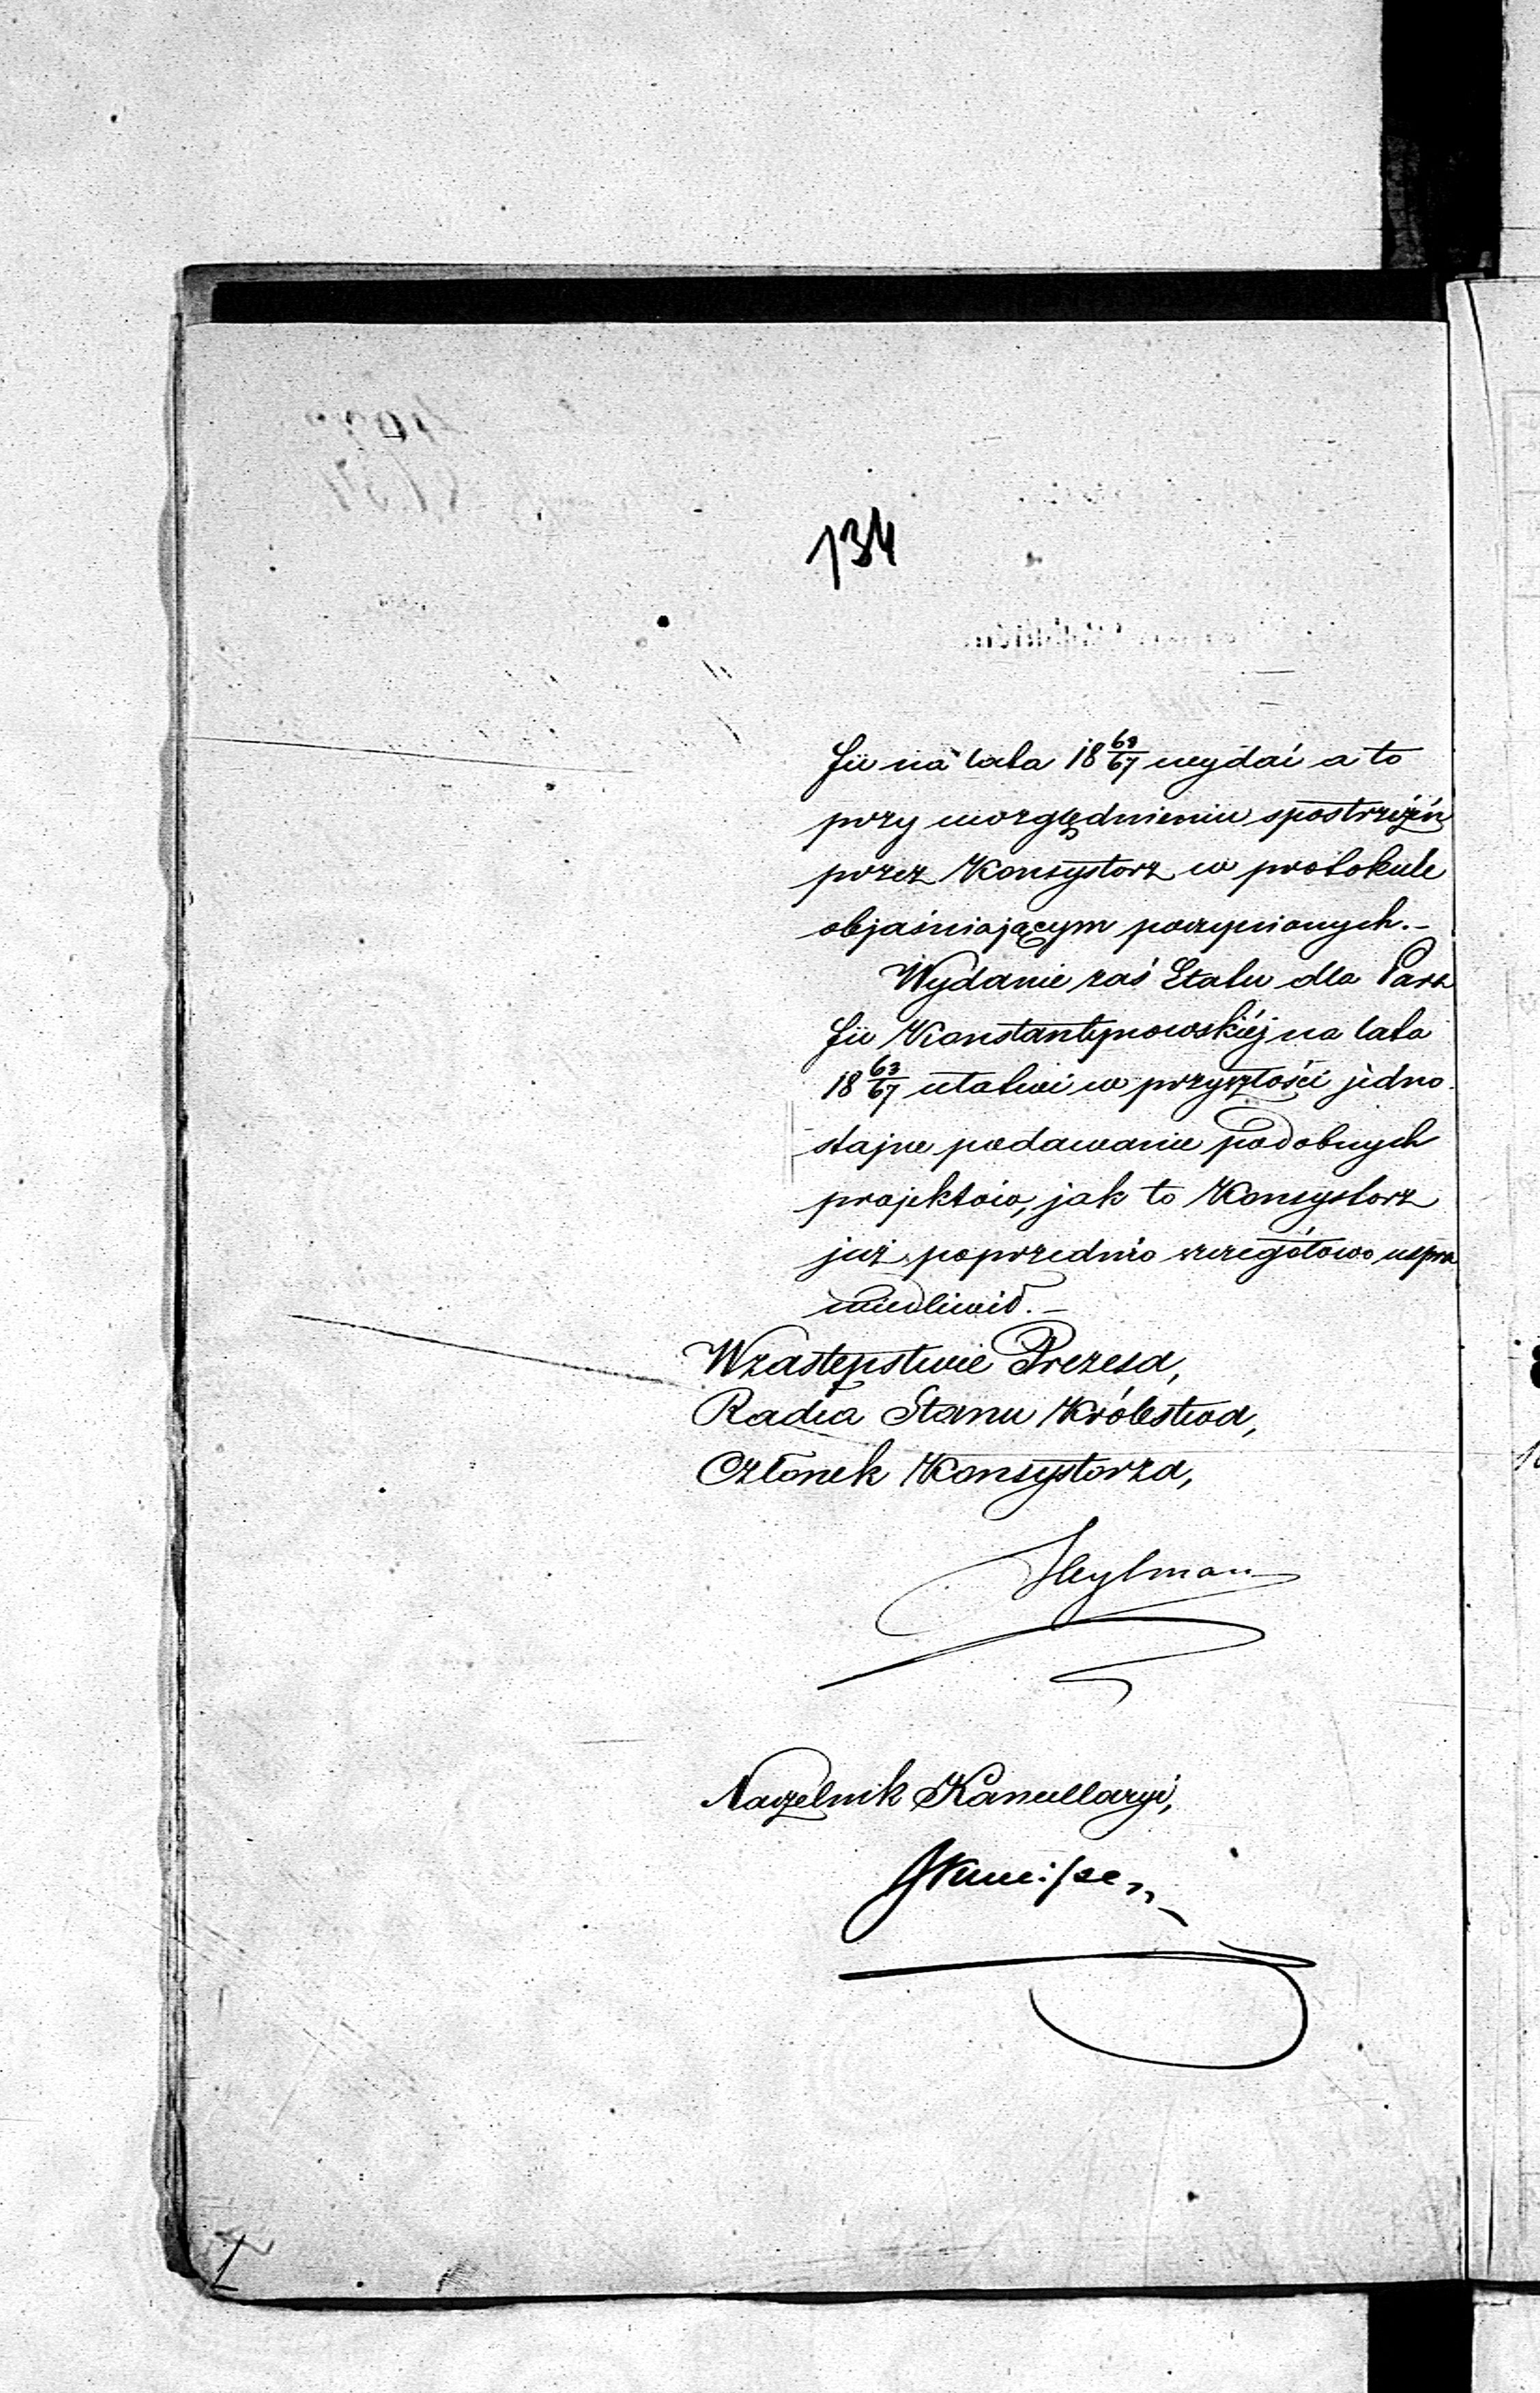 134
fii na lata 18 63/67 wydać a to
przy uwzględnieniu spostrzeżeń
przez Konsystorz w protokule
objaśniającym poczynionych.-
Wydanie zaś Etatu dla Para
fii Konstantynowskiéj na lata
18 63/67 ułatwi w przyszłości jedno-
stajne podawanie podobnych
projektów, jak to Konsystorz
już poprzednio szczegółowo uspra
wiedliwił.-
W zastępstwie Prezesa,
Radca Stanu Królestwa,
Członek Konsystorza,
Heylman
Naczelnik Kancellaryi,